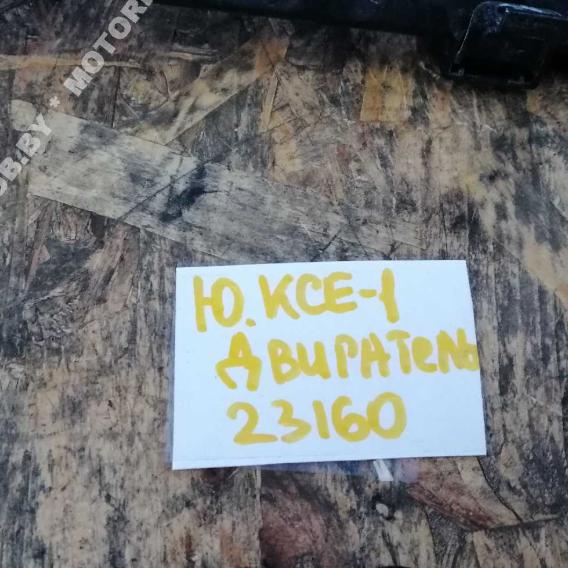 OB.BY * MOTOR
Ю. КСЕ-1
ДВИРАТЕЛЬ
23160